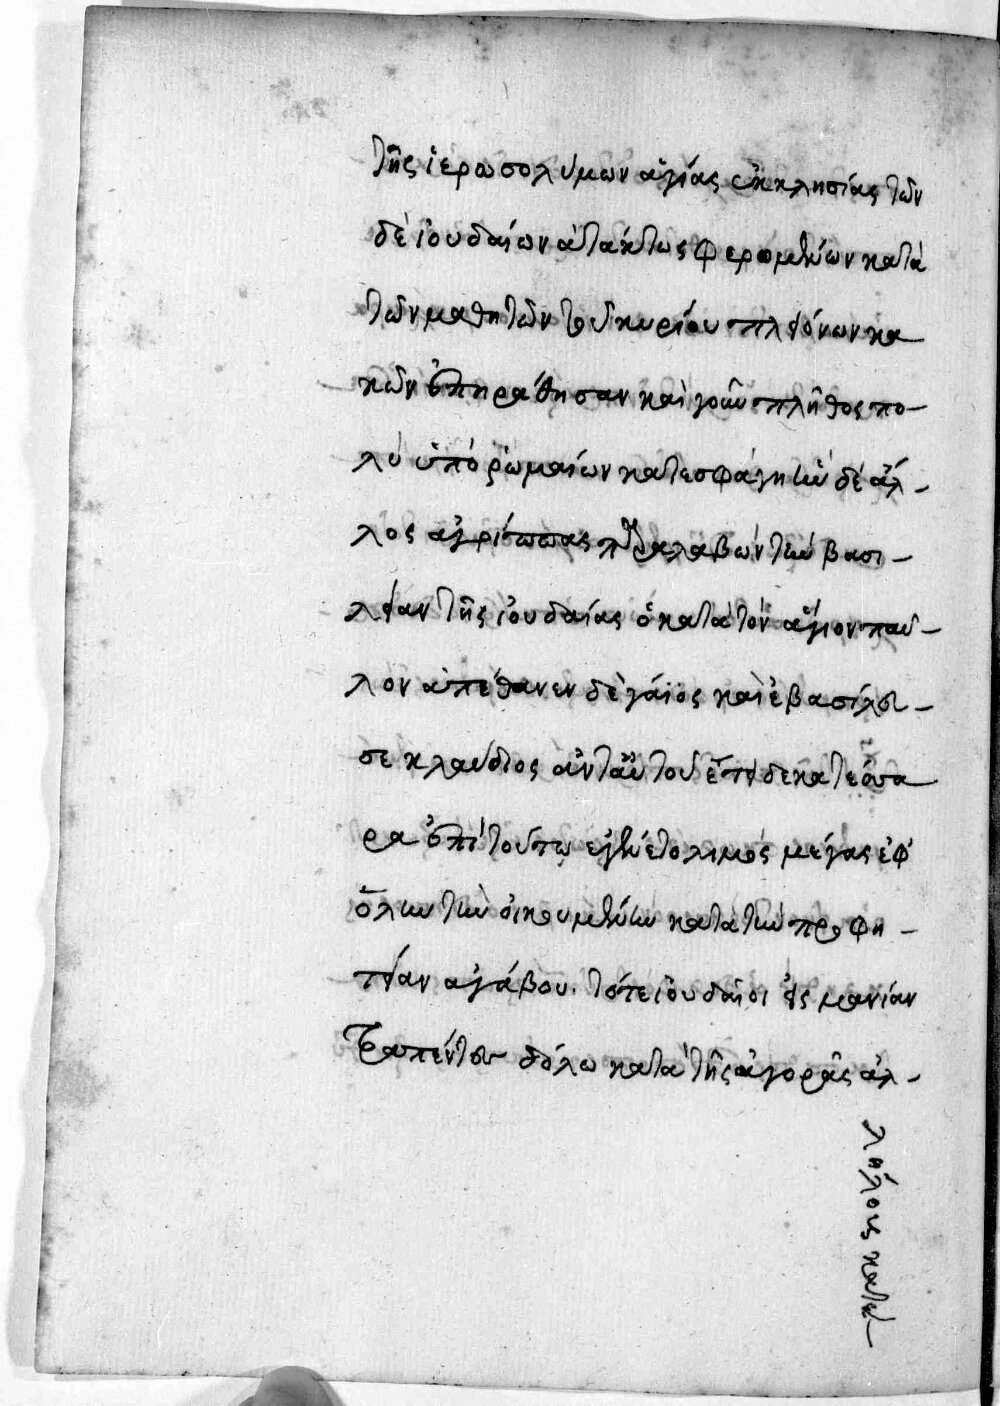 τῆς ἱεροσολύμων ἁγίας ἐκκλησίας τῶν
δὲ ἰουδαίων ἀτάκτως φερομένων κατὰ
τῶν μαθητῶν τοῦ κυρίου πλειόνων κα
κῶν ἐπηράθησαν καὶ γοῦν πλῆθος πο-
λὺ ὑπὸ ῥωμαίων κατεσφάγη ἦν δὲ ἄλ-
λος ἀγρίππας παραλαβὼν τὴν βασι-
λείαν τῆς ἰουδαίας ὁ κατὰ τὸν ἅγιον παῦ-
λον ἀπέθανεν δὲ γάϊος καὶ ἐβασίλευ-
σε κλαύδιος ἀντ' αὐτοῦ ἔτη δεκατέσσα
ρα ἐπὶ τούτω ἐγένετο λιμὸς μέγας ἐφ'
ὅλην τὴν οἰκουμένην κατὰ τὴν προφη-
τείαν ἀγάβου. τότε ἰουδαῖοι εἰς μανίαν
τραπέντες δόλω κατὰ τῆς ἀγορᾶς ἀλ-
λήλους κατέ-